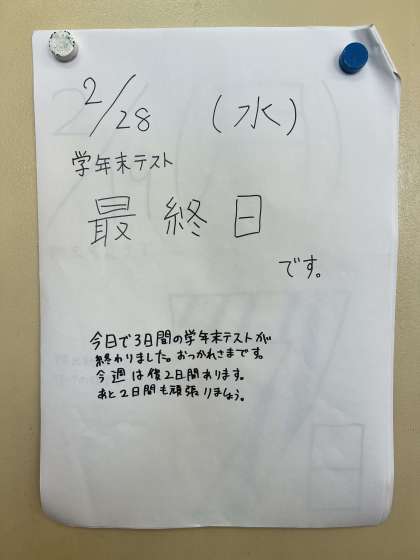 2/28 (水)
学年末テスト
最終日
です。
今日で3日間の学年末テストが
終わりました。おつかれさまです。
今週は後2日間あります。
あと2日間も頑張りましょう。